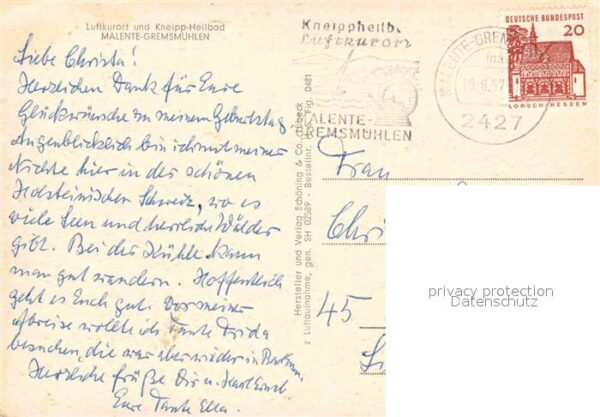 Luftkurort und Kneipp-Heilbad
MALENTE-GREMSMÜHLEN
Liebe Christa!
Herzlichen Dank für Eure
Glückwünsche zu meinem Geburtstag
Augenblicklich bin ich mit meiner
Nichte hier in der schönen
Holsteinischen Schweiz, wo es
viele Seen und herrliche Wälder
gibt. Bei der Kühle kann
man gut wandern. Hoffentlich
geht es Euch gut. Vor meiner
Abreise wollte ich Tante Frida
besuchen, die war aber wieder in
Herzliche Grüße Dir u. Karl Ernst
Eure Tante Ella.
Hersteller und Verlag Schöning & Co., Lübeck
z Luftaufnahme, gen. SH 02589 - Bestellnr. Fig. 0481
Kneippheilb
Luftkurort
MALENTE-
GREMSMÜHLEN
MALENTE-GREMS
2427
DEUTSCHE BUNDESPOST
20
LORSCH/HESSEN
Frau
Chri
45
privacy protection
Datenschutz